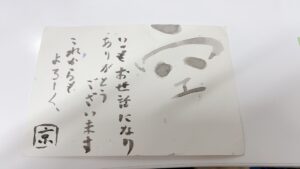 いつもお世話になり
ありがとう
ございます
これからも
よろしく、
京